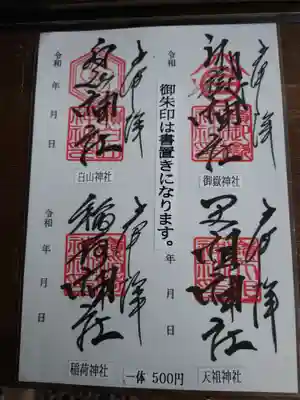 奉拝
御嶽神社
令和 年 月 日
御嶽神社
御朱印は書置きになります。
奉拝
白山神社
令和 年 月 日
白山神社
奉拝
天祖神社
年 月 日
天祖神社
奉拝
稲荷神社
令和 年 月 日
稲荷神社
一体 500円